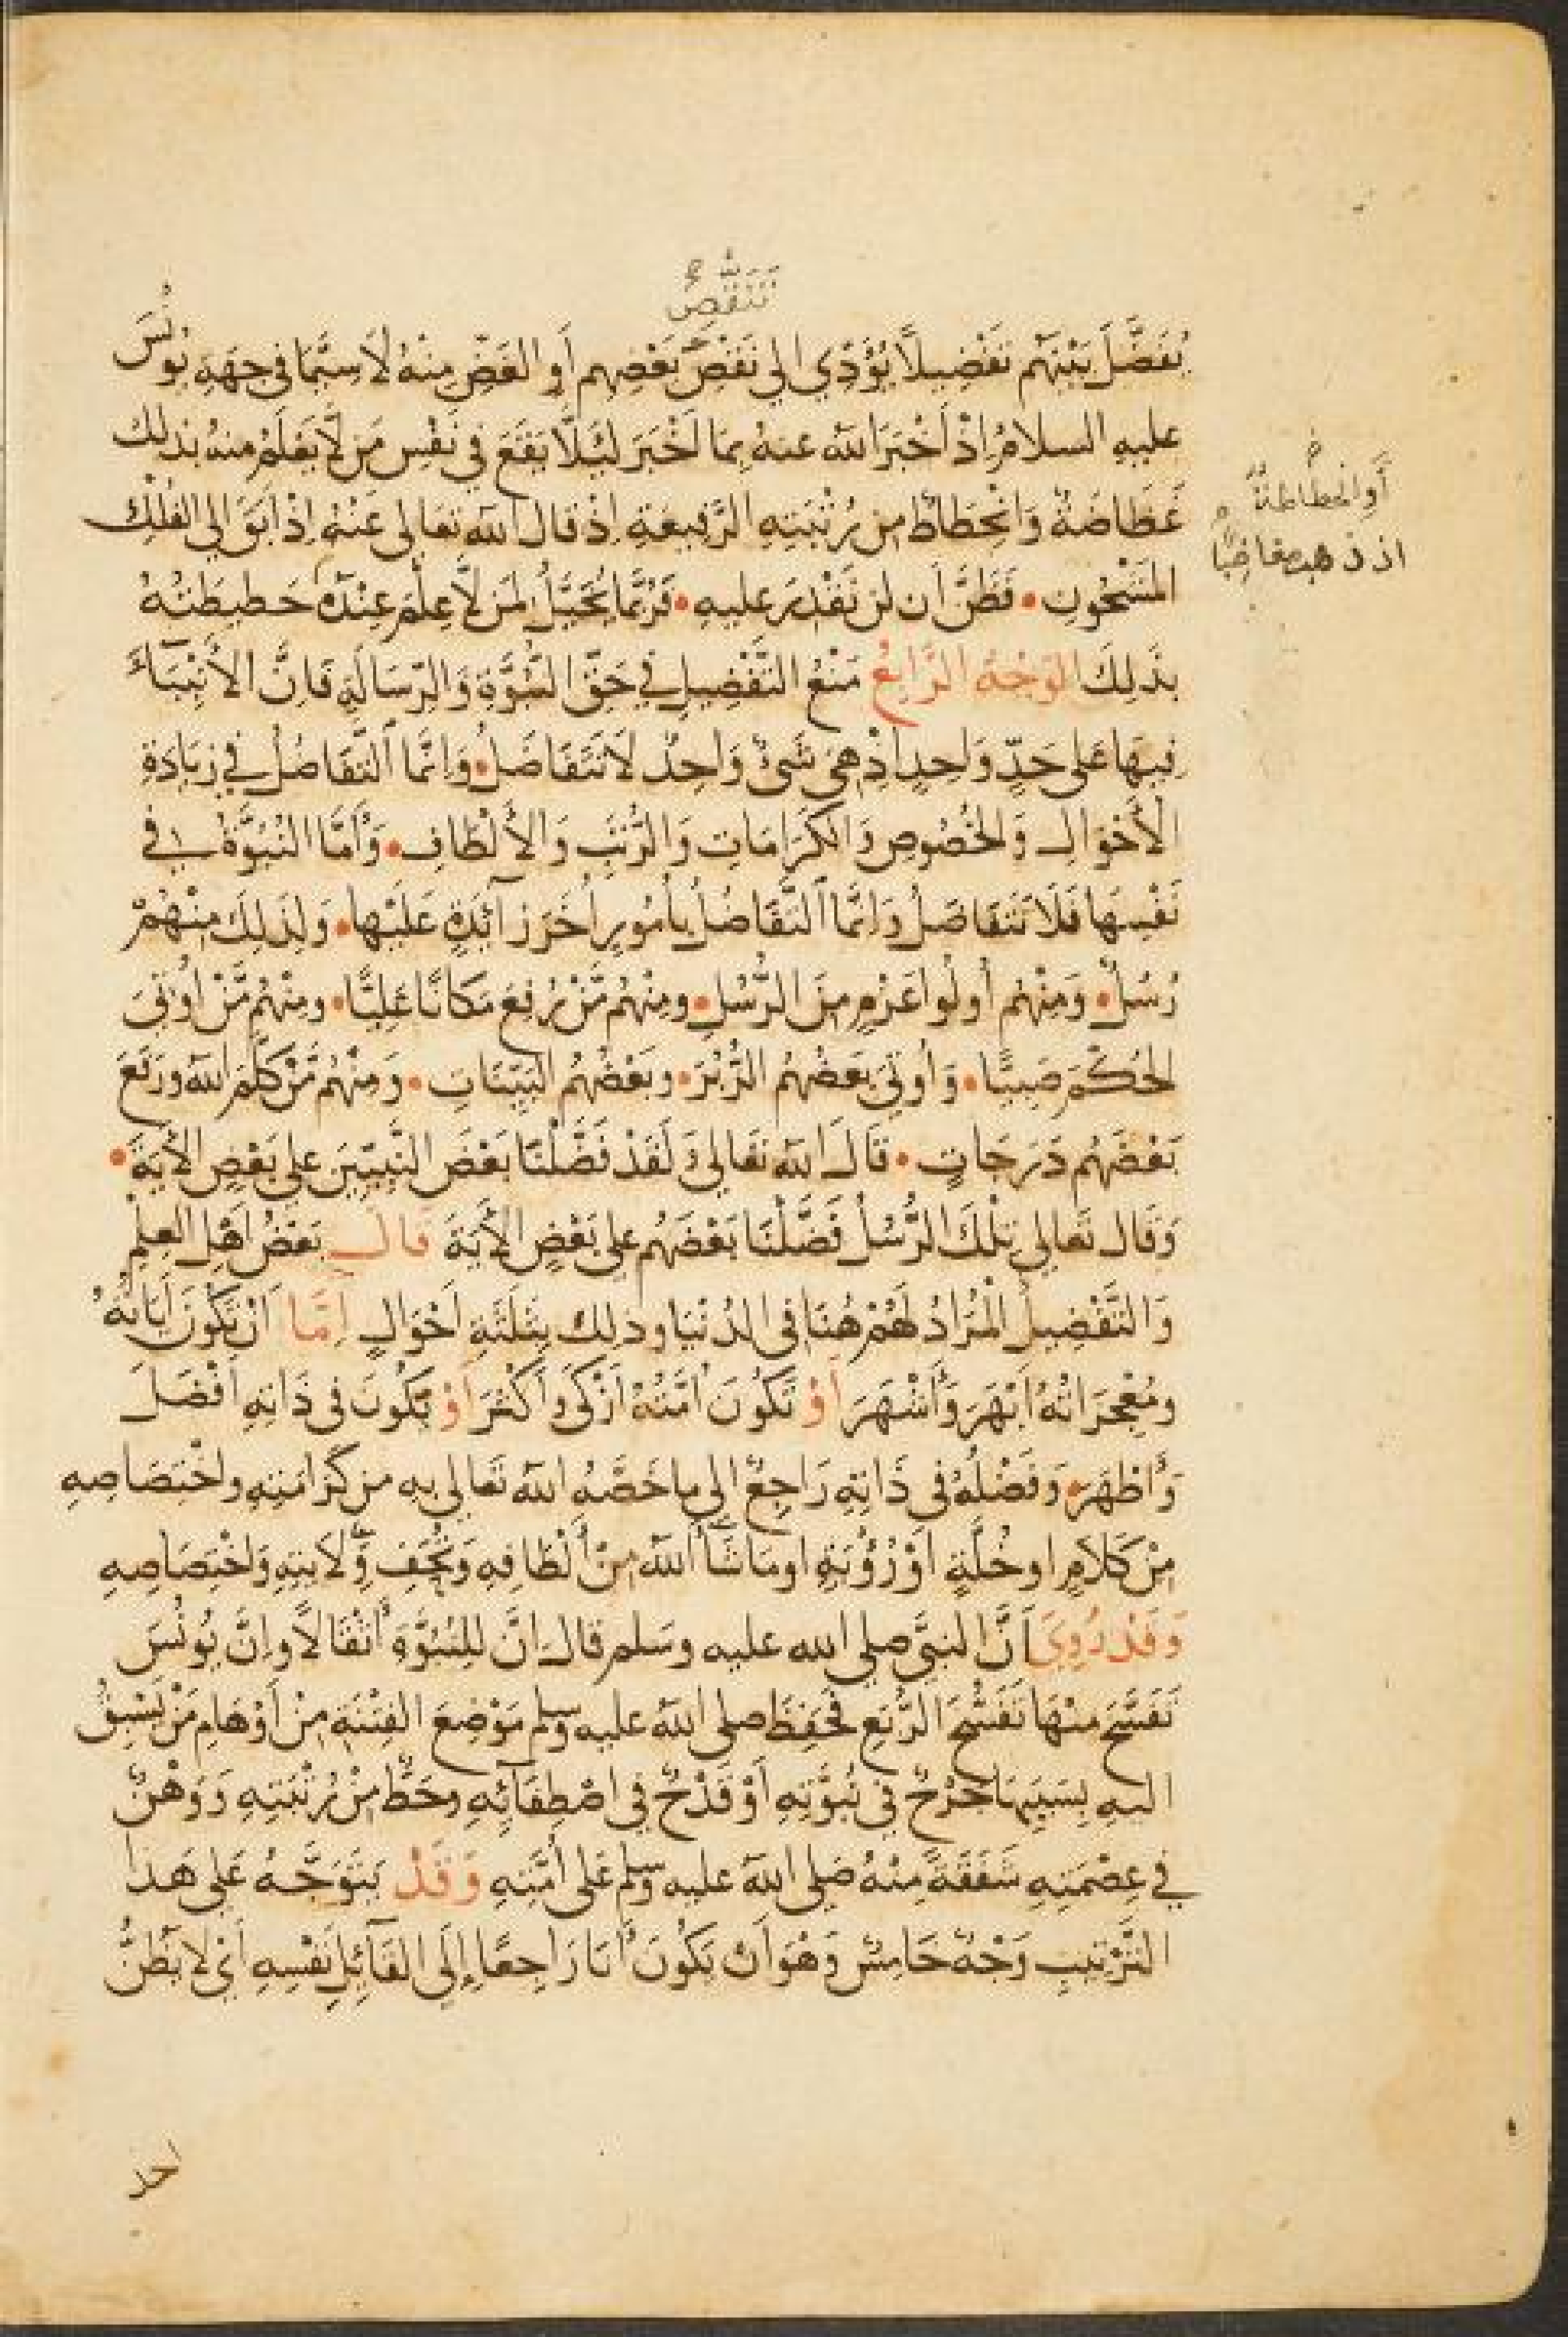 تَنَقُّصِ
يُفَضَّلَ بَيْنَهُم تَفْضِيلًا يُؤَدِّي الي نَقْصِ بَعْضِهِم أَوِ الغَضِّ مِنْهُ لَا سِيَّمَا في جِهَةِ يُونُسَ
عليهِ السلامُ اِذْ اَخْبَرَ اللهُ عنهُ بِمَا اَخْبَرَ لِئَلَّا يَقَعَ فِي نَفْسِ مَن لَّا يَعْلَمُ منهُ بذلك
غَضَاضَةٌ وَانْحِطَاطٌ مِن رُتْبَتِهِ الرَّفِيعَةِ اِذْ قال اللهُ تعَالى عَنْهُ اِذْ اَبَقَ الي الفُلْكِ
أَوِ انحطاطٌ
اذ ذهب مغاضِبًا
المَشْحُونِ • فَظَنَّ اَن لن نَقْدِرَ عليهِ • فَرُبَّمَا يُخَيَّلُ لِمَن لَّا عِلْمَ عِنْدَهُ حَطِيطَتُهُ
بِذَلِكَ الوَجْهُ الرَّابِعُ مَنْعُ التَّفْضِيلِ فِي حَقِّ النُّبُوَّةِ وَالرِّسَالَةِ فَاِنَّ الأَنْبِيَآءَ
فِيهَا عَلى حَدٍّ وَاحِدٍ اِذْ هِيَ شَيْءٌ وَاحِدٌ لَا تَتَفَاضَلُ • وَاِنَّمَا التَّفَاضُلُ فِي زِيَادَةِ
الأَحْوَالِ وَالخُصُوصِ وَالكَرَامَاتِ وَالرُّتَبِ وَالأَلْطَافِ • وَأَمَّا النُّبُوَّةُ فِي
نَفْسِهَا فَلَا تَتَفَاضَلُ وَاِنَّمَا التَّفَاضُلُ بِأُمُورٍ اُخَرَ زَآئِدَةٍ عَلَيْهَا • وَلِذَلِكَ مِنْهُمْ
رُسُلٌ • وَمِنْهُم أُولُوا عَزْمٍ مِنَ الرُّسُلِ • ومِنْهُم مَّنْ رُفِعَ مَكَانًا عَلِيًّا • ومِنْهُم مَّنْ اُوْتِيَ
الحُكْمَ صَبِيًّا • وَاُوتِيَ بَعْضُهُم الزُّبُرَ • وبَعْضُهُم البَيِّنَاتِ • وَمِنْهُم مَّنْ كَلَّمَ اللهُ ورَفَعَ
بَعْضَهُم دَرَجَاتٍ • قَالَ اللهُ تعَالي وَلَقَدْ فَضَّلْنَا بَعْضَ النَّبِيِّينَ علي بَعْضٍ الآيَةَ •
وَقَال تَعالي تِلْكَ الرُّسُلُ فَضَّلْنَا بَعْضَهُم علي بَعْضٍ الآيَةَ قال بَعْضُ اَهْلِ العِلْمِ
وَالتَّفْضِيلُ المُرَادُ لَهُمْ هُنَا فِى الدُنْيَا وذلِك بِثَلَثَةِ اَحْوَالٍ اِمَّا اَنْ تَكُونَ آيَاتُهُ
ومُعْجِزَاتُهُ اَبْهَرَ وَأَشْهَرَ أَوْ تَكُونَ اُمَّتُهُ اَزْكَى وَاَكْثَرَ أَوْ يَكُونَ فى ذَاتِهِ اَفْضَلَ
وَأَظْهَرَ • وَفَضْلُهُ فى ذَاتِهِ رَاجِعٌ الى ما خَصَّهُ اللهُ تَعالى بِهِ من كَرَامَتِهِ واخْتِصَاصِهِ
مِنْ كَلَامٍ او خُلَّةٍ اَوْ رُؤْيَةٍ او مَا شَآءَ اللهُ مِنْ أَلْطَافِهِ وَتُحَفِ وِلَايَتِهِ وَاخْتِصَاصِهِ
وَقَدْ رُوِيَ أَنَّ النبيَّ صلي الله عليه وسَلم قالَ اِنَّ لِلنُبُوَّةِ أَثْقَالًا واِنَّ يُونُسَ
تَفَسَّخَ مِنْهَا تَفَسُّخَ الرُّبَعِ فَحَفِظَ صلي اللهُ عليه وسلم مَوْضِعَ الفِتْنَةِ مِنْ اَوْهَامِ مَنْ يَسْبِقُ
اليهِ بِسَبَبِهَا جَرْحٌ فِي نُبُوَّتِهِ أَوْ قَدْحٌ فِي اصْطِفَآئِهِ وحَطٌّ مِنْ رُتْبَتِهِ وَوَهْنٌ
فِي عِصْمَتِهِ شَفَقَةً مِنْهُ صَلي اللهُ عليه وسلم عَلى أُمَّتِهِ وَقَدْ يَتَوَجَّهُ عَلي هَذا
التَّرْتِيبِ وَجْهٌ خَامِسٌ وَهُوَ اَنْ يَكُونَ أَنَا رَاجِعًا إِلَى القَآئِلِ نَفْسِهِ اَيْ لَا يَظُنُّ
احد